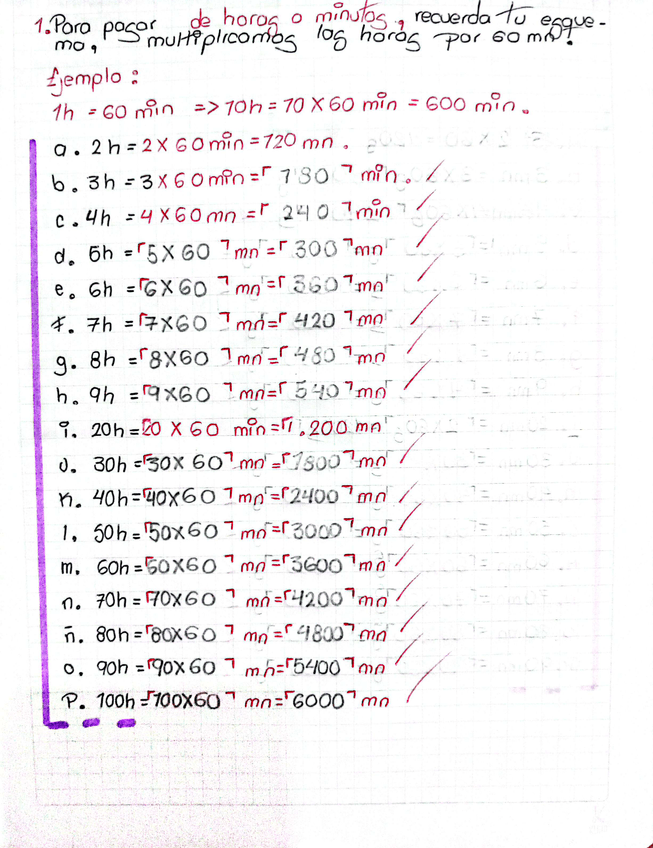 1. Para pasar de horas a minutos, recuerda tu esque-
ma, multiplicamos las horas por 60 mn.
Ejemplo:
1h = 60 min => 10h = 10 X 60 min = 600 min.
a. 2h = 2 X 60 min = 120 mn.
b. 3h = 3 X 60 min = 180 min.
c. 4h = 4 X 60 mn = 240 min
d. 5h = 5 X 60 mn = 300 mn
e. 6h = 6 X 60 mn = 360 mn
f. 7h = 7 X 60 mn = 420 mn
g. 8h = 8 X 60 mn = 480 mn
h. 9h = 9 X 60 mn = 540 mn
i. 20h = 20 X 60 min = 1.200 mn
J. 30h = 30 X 60 mn = 1800 mn
K. 40h = 40 X 60 mn = 2400 mn
l. 50h = 50 X 60 mn = 3000 mn
m. 60h = 60 X 60 mn = 3600 mn
n. 70h = 70 X 60 mn = 4200 mn
ñ. 80h = 80 X 60 mn = 4800 mn
o. 90h = 90 X 60 mn = 5400 mn
P. 100h = 100 X 60 mn = 6000 mn